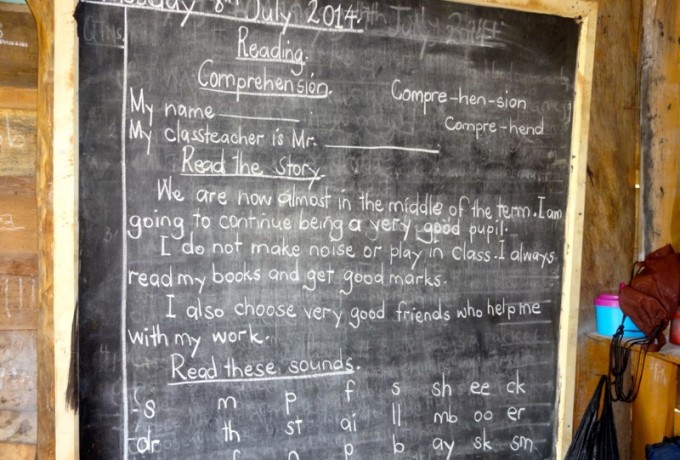 8th July 2014.
Reading
Comprehension.
Compre-hen-sion
My name
Compre-hend
My classteacher is Mr.
Read the story.
We are now almost in the middle of the term. I am
going to continue being a very good pupil.
I do not make noise or play in class. I always
read my books and get good marks.
I also choose very good friends who help me
with my work.
Read these sounds.
s m p f s sh ee ck
dr th st ai ll mb oo er
p b ay sk sm